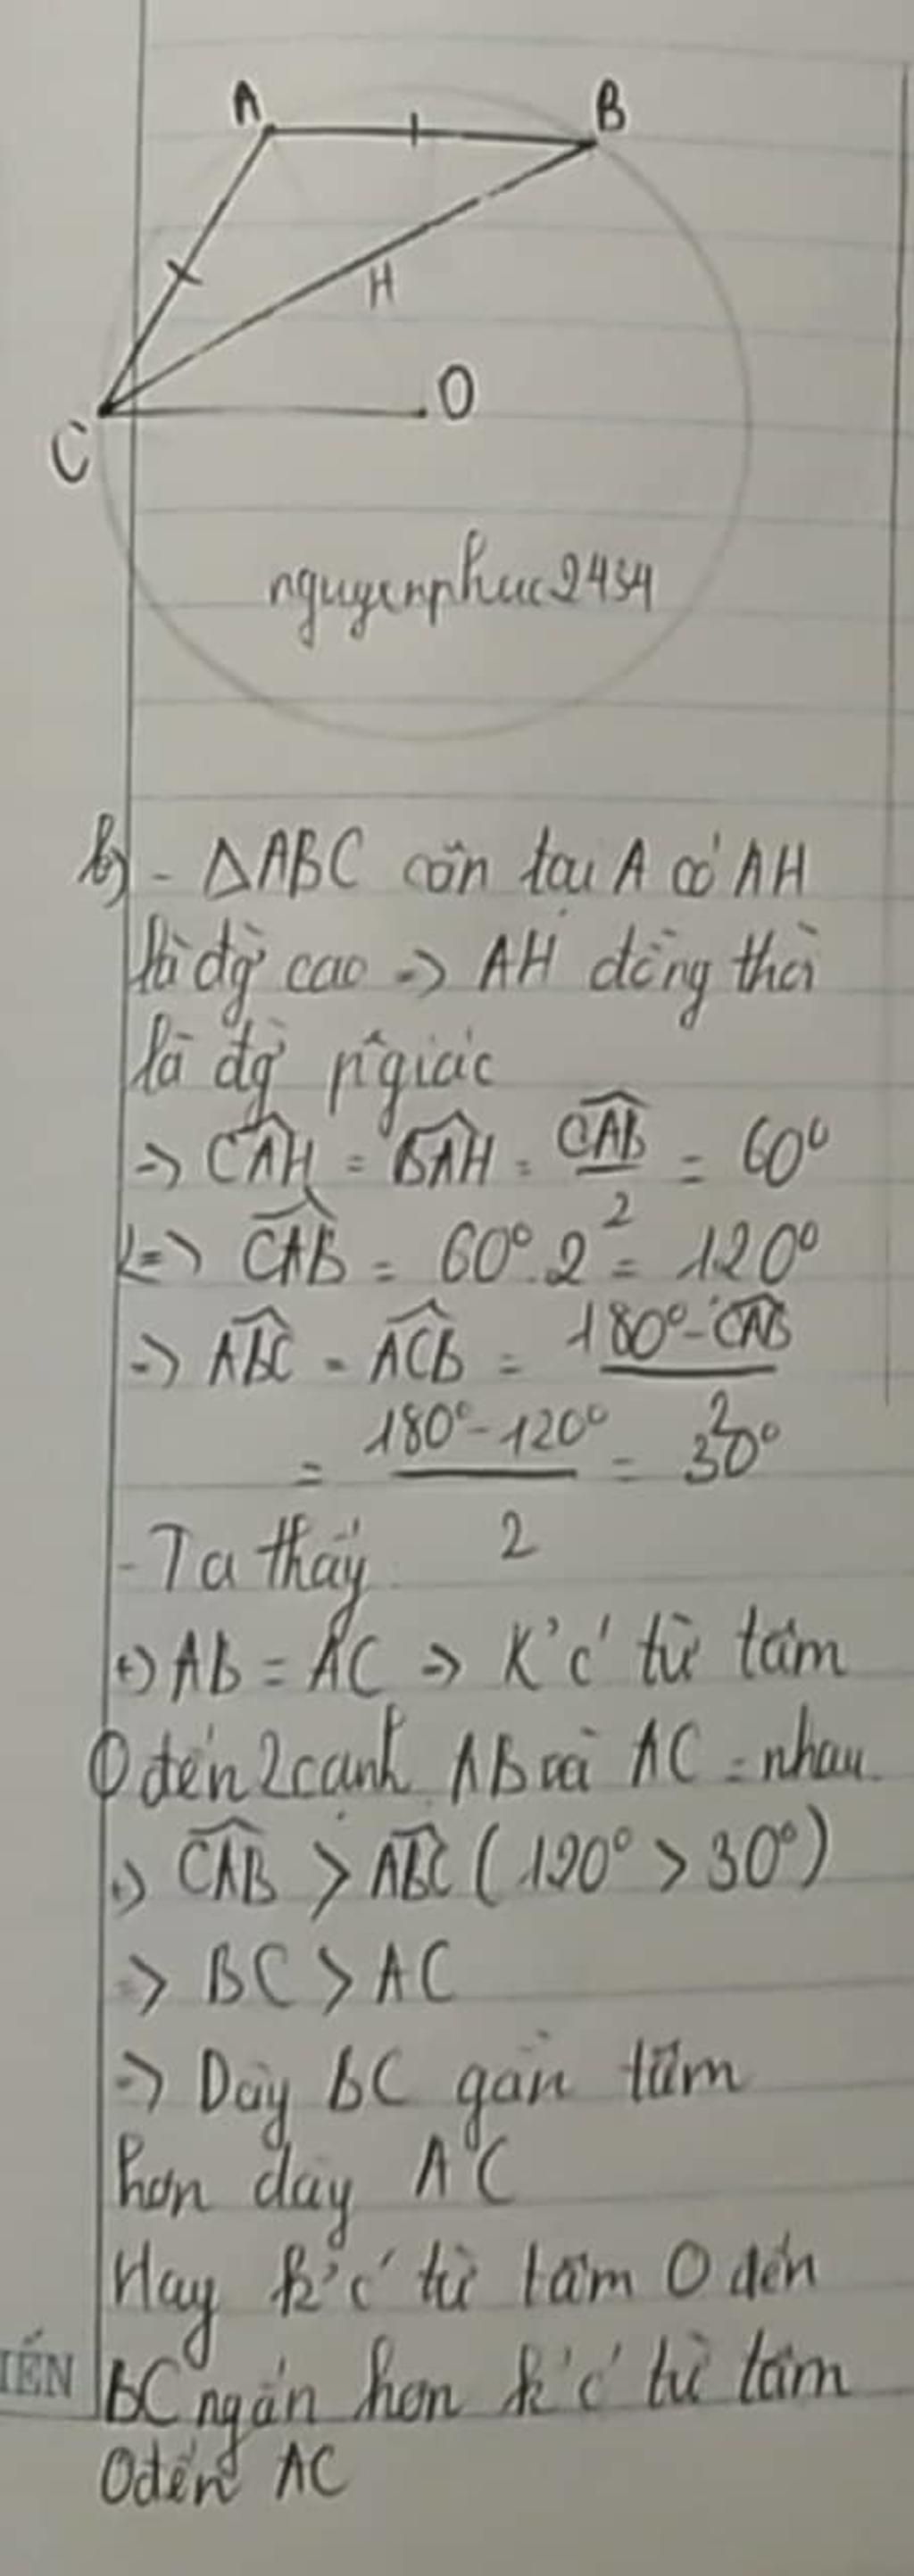 A
B
H
O
C
nguyenphuc2434
b) - ΔABC cân tại A có AH
là đg' cao => AH đồng thời
là đg' p^giác
=> CAH = BAH = CAB/2 = 60°
<=> CAB = 60°.2 = 120°
=> ABC = ACB = (180° - CAB)/2
= (180° - 120°)/2 = 30°
- Ta thấy
+) AB = AC => K'c' từ tâm
O đến 2 cạnh AB và AC = nhau
+) CAB > ABC (120° > 30°)
=> BC > AC
=> Dây BC gần tâm
hơn dây AC
Hay k'c' từ tâm O đến
IẾN
BC ngắn hơn k'c' từ tâm
O đến AC